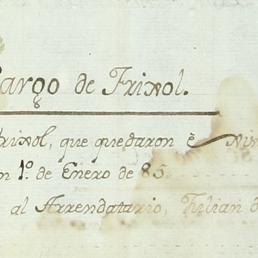 Cargo de Frixol.
Frixol, que quedaron è
en 1º de Enero de 85
al Arrendatario, Julian